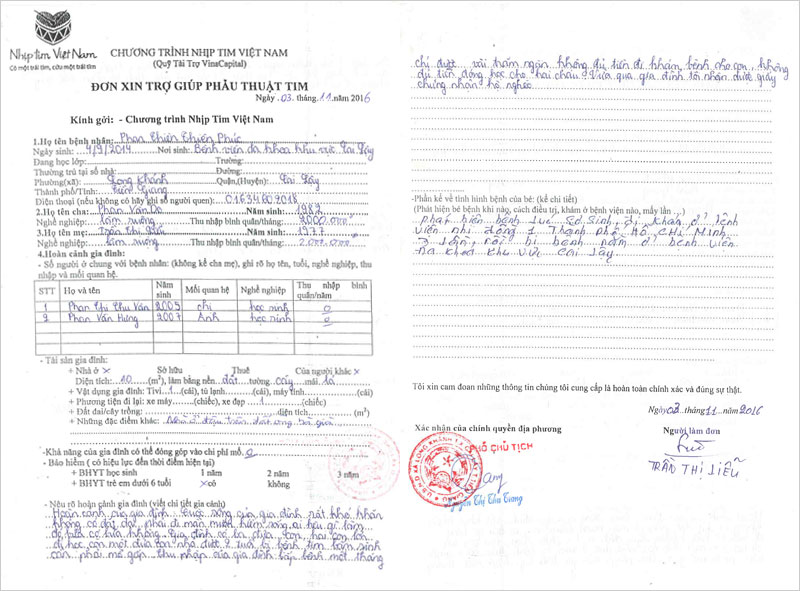 Nhịp Tim Việt Nam
Có một trái tim, cứu một trái tim
CHƯƠNG TRÌNH NHỊP TIM VIỆT NAM
(Quỹ Tài Trợ VinaCapital)
ĐƠN XIN TRỢ GIÚP PHẪU THUẬT TIM
Ngày .03. tháng .11. năm 2016
Kính gửi: - Chương trình Nhịp Tim Việt Nam
1.Họ tên bệnh nhân: Phan Thiên Thiên Phúc
Ngày sinh: 4/9/2014 Nơi sinh: Bệnh viện đa khoa khu vực Cai Lậy
Đang học lớp: Trường:
Thường trú tại số nhà: Đường:
Phường(xã): Long Khánh Quận,(Huyện): Cai Lậy
Thành phố/Tỉnh: Tiền Giang
Điện thoại (nếu không có hãy ghi số người quen):
2.Họ tên cha: Phan Văn Năm sinh: 1982
Nghề nghiệp: làm mướn Thu nhập bình quân/tháng: 2000.000
3.Họ tên mẹ: Trần Thị Liễu Năm sinh: 1977
Nghề nghiệp: làm mướn Thu nhập bình quân/tháng: 2.000.000
4.Hoàn cảnh gia đình:
- Số người ở chung với bệnh nhân: (không kể cha mẹ), ghi rõ họ tên, tuổi, nghề nghiệp, thu
nhập và mối quan hệ.
STT Họ và tên Năm sinh Mối quan hệ Nghề nghiệp Thu nhập bình quân/năm
1 Phan Thị Thu Vân 2005 chị học sinh 0
2 Phan Văn Hưng 2007 Anh học sinh 0
- Tài sản gia đình:
+ Nhà ở x Sở hữu Thuê Của người khác x
Diện tích: 10 (m²), làm bằng nền đất tường cây mái lá
+ Vật dụng gia đình: Tivi 1 (cái), tủ lạnh (cái), máy tính (cái)
+ Phương tiện đi lại: xe máy (chiếc), xe đạp 1 (chiếc)
+ Đất đai/cây trồng: diện tích (m²)
+ Những đặc điểm khác:
-Khả năng của gia đình có thể đóng góp vào chi phí mổ. 0
- Bảo hiểm ( có hiệu lực đến thời điểm hiện tại)
+ BHYT học sinh 1 năm 2 năm 3 năm
+ BHYT trẻ em dưới 6 tuổi x có không
- Nêu rõ hoàn cảnh gia đình (viết chi tiết gia cảnh)
Hoàn cảnh của gia đình cuộc sống của gia đình rất khó khăn
không có đất đai phải đi mần mướn kiếm sống ai kêu gì làm
đó bữa có bữa không. Gia đình có ba đứa con, hai con lớn
đi học còn một đứa con nhỏ được 2 tuổi bị bệnh tim bẩm sinh
cần phải mổ gấp thu nhập của gia đình bấp bênh một tháng
chỉ được vài trăm ngàn không đủ tiền đi khám bệnh cho con, không
đủ tiền đóng học cho hai cháu. Vừa qua gia đình tôi nhận được giấy
chứng nhận hộ nghèo
-Phần kể về tình hình bệnh của bé: (kể chi tiết)
(Phát hiện bé bệnh khi nào, cách điều trị, khám ở bệnh viện nào, mấy lần ...)
phát hiện bệnh lúc sơ sinh, đi khám ở bệnh
viện nhi đồng 1 Thành Phố Hồ Chí Minh
3 lần, rồi bị bệnh nằm ở bệnh viện
đa khoa khu vực Cai Lậy.
Tôi xin cam đoan những thông tin chúng tôi cung cấp là hoàn toàn chính xác và đúng sự thật.
Ngày 03 tháng 11 năm 2016
Xác nhận của chính quyền địa phương Người làm đơn
PHÓ CHỦ TỊCH
Nguyễn Thị Thu
TRẦN THỊ LIỄU